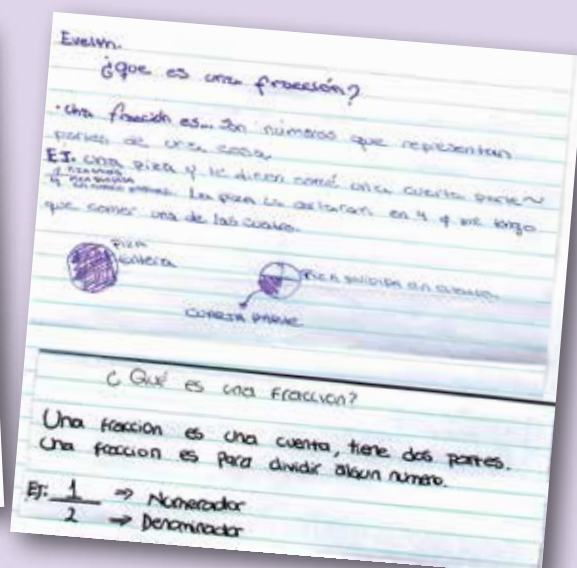 Evelyn.
¿que es una fracción?
• Una fracción es... Son números que representan
partes de una cosa.
EJ. una piza y te dicen comé una cuarta parte~
La piza la cortaran en 4 y me tengo
que comer una de las cuatro.
Piza
entera
Piza dividida en cuartos.
cuarta parte
¿Qué es una fraccion?
Una fraccion es una cuenta, tiene dos partes.
Una fraccion es para dividir algun numero.
EJ: 1 => Numerador
2 => Denominador